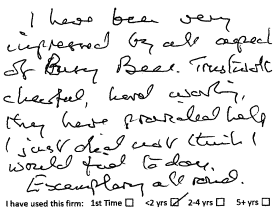 I have been very
impressed by all aspect
of Busy Bees. Trustworth
cheerful, hard working,
they have provided help
I just did not think I
would find today.
Exemplary all round.
I have used this firm: 1st Time ☐ <2 yrs ☑ 2-4 yrs ☐ 5+ yrs ☐